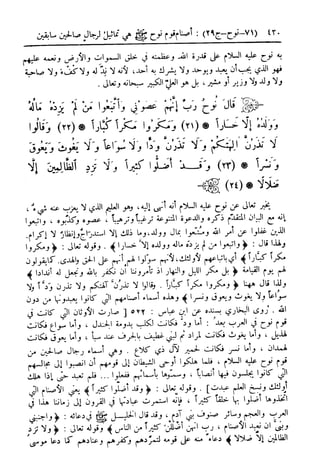 ٤٣٠ (٧١-نوح-ج٢٩) : أصنام قوم نوح ﷺ هي تماثيل لرجال صالحين سابقين
به نوح عليه السلام على قدرة الله وعظمته في خلق السموات والأرض ونعمه عليهم
فهو الذي يجب أن يعبد ويوحد ولا يشرك به أحد، لأنه لا ند له ولا كفء ولا صاحبة
ولا ولد ولا وزير أو مشير، بل هو العلي الكبير سبحانه وتعالى.
قَالَ نُوحٌ رَّبِّ إِنَّهُمْ عَصَوْنِي وَاتَّبَعُوا مَن لَّمْ يَزِدْهُ مَالُهُ
وَوَلَدُهُ إِلَّا خَسَارًا * (٢١) وَمَكَرُوا مَكْرًا كُبَّارًا * (٢٢) وَقَالُوا
لَا تَذَرُنَّ آلِهَتَكُمْ وَلَا تَذَرُنَّ وَدًّا وَلَا سُوَاعًا وَلَا يَغُوثَ وَيَعُوقَ
وَنَسْرًا * (٢٣) وَقَدْ أَضَلُّوا كَثِيرًا وَلَا تَزِدِ الظَّالِمِينَ إِلَّا
ضَلَالًا * (٢٤)
يخبر تعالى عن نوح عليه السلام أنه أنهى إليه، وهو العليم الذي لا يعزب عنه شيء،
إنه مع البيان المتقدم ذكره والدعوة المتنوعة ترغيباً وترهيباً، عصوه وكذبوه، واتبعوا
الذين غفلوا عن أمر الله ومتعوا بمال وولد، وما ذلك إلا استدراج وإنظار لا إكرام.
ولهذا قال : ﴿واتبعوا من لم يزده ماله وولده إلا خسارا﴾ . وقوله تعالى : ﴿ومكروا
مكراً كباراً﴾ أي باتباعهم لأولئك، لأنهم سولوا لهم أنهم على الحق والهدى. كما يقولون
لهم يوم القيامة ﴿بل مكر الليل والنهار إذ تأمروننا أن نكفر بالله ونجعل له أندادا﴾
ولذا قال ههنا ﴿ومكروا مكراً كباراً. وقالوا لا تذرن آلهتكم ولا تذرن وداً ولا
سواعاً ولا يغوث ويعوق ونسرا﴾ وهذه أسماء أصنامهم التي كانوا يعبدونها من دون
الله . روى البخاري بسنده عن ابن عباس : ٥٢٢ [صارت الأوثان التي كانت في
قوم نوح في العرب بعدُ : أما ود فكانت لكلب بدومة الجندل، وأما سواع فكانت
لهذيل، وأما يغوث فكانت لمراد ثم لبني غطيف بالجرف عند سبأ، وأما يعوق فكانت
لهمدان، وأما نسر فكانت لحمير لآل ذي كلاع . وهي أسماء رجال صالحين من
قوم نوح عليه السلام، فلما هلكوا أوحى الشيطان إلى قومهم أن انصبوا إلى مجالسهم
التي كانوا يجلسون فيها أنصاباً، وسموها بأسمائهم ففعلوا، فلم تعبد حتى إذا هلك
أولئك ونسخ العلم عبدت] . وقوله تعالى : ﴿وقد أضلوا كثيراً﴾ يعني الأصنام التي
اتخذوها أضلوا بها خلقاً كثيراً، فإنه استمرت عبادتها في القرون إلى زماننا هذا في
العرب والعجم وسائر صنوف بني آدم. وقد قال الخليل ﷺ في دعائه : ﴿واجنبني
وبني أن نعبد الأصنام، رب إنهن أضللن كثيراً من الناس﴾ وقوله تعالى : ﴿ولا تزد
الظالمين إلا ضلالاً﴾ دعاء منه على قومه لتمردهم وكفرهم وعنادهم كما دعا موسى